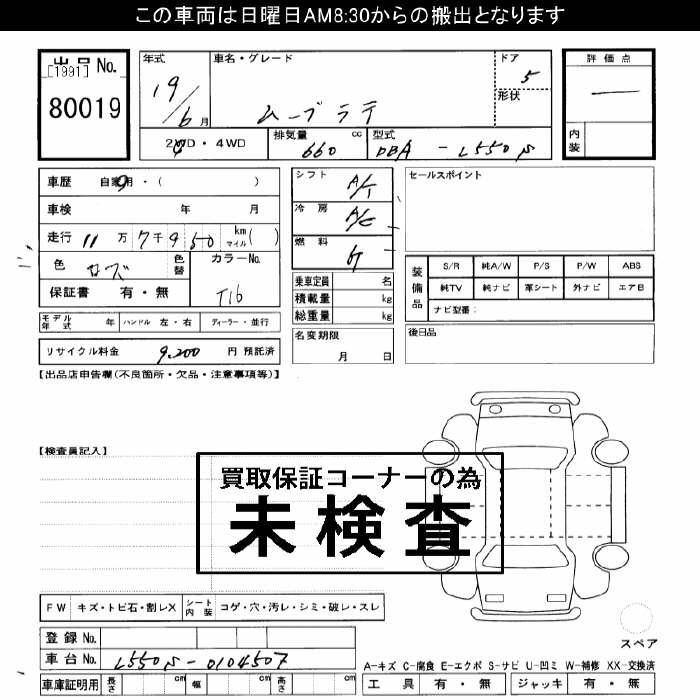 この車両は日曜日AM8:30からの搬出となります
出品 No.
[1991]
80019
年式
19/6 月
車名・グレード
ムーブラテ
ドア
5
形状
評価点
内装
2WD・4WD
排気量 cc
660
型式
DBA - L550S
車歴 自家用・( )
車検 年 月
走行 11 万 7 千 9 50 km マイル ( )
色 ローズ 色替
カラーNo.
T16
保証書 有・無
モデル年式 年 ハンドル 左・右 ディーラー・並行
リサイクル料金 9,200 円 預託済
シフト A/T
冷房 A/C
燃料
乗車定員 名
積載量 kg
総重量 kg
名変期限
月 日
セールスポイント
装備品
S/R 純A/W P/S P/W ABS
純TV 純ナビ 革シート 外ナビ エアB
ナビ型番:
後日品
【出品店申告欄(不良箇所・欠品・注意事項等)】
【検査員記入】
買取保証コーナーの為
未検査
FW キズ・トビ石・割レX シート内装 コゲ・穴・汚レ・シミ・破レ・スレ
登録 No.
車台 No. L550S-0104507
車庫証明用 長さ cm 幅 cm 高さ cm
スペア
A-キズ C-腐食 E-エクボ S-サビ U-凹ミ W-補修 XX-交換済
工具 有・無 ジャッキ 有・無